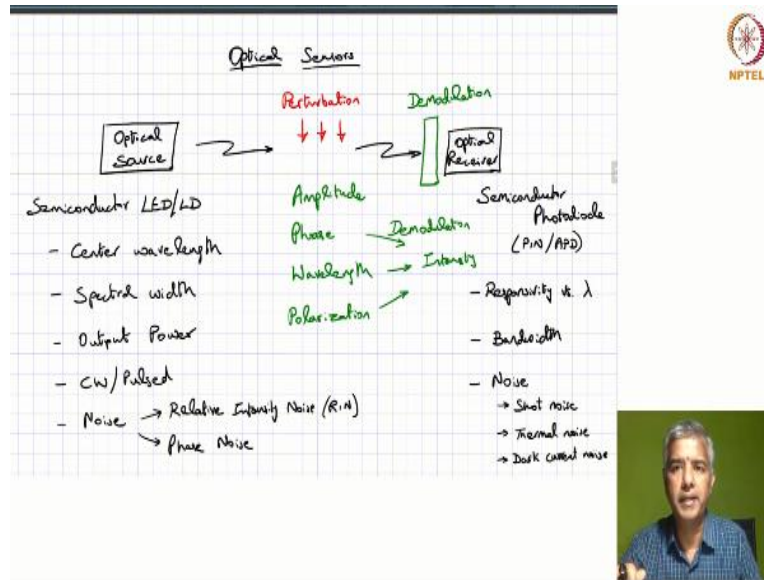 Optical Sensors
NPTEL
Perturbation
Demodulation
Optical
Source
Optical
Receiver
Semiconductor LED/LD
- Center wavelength
- Spectral width
- Output Power
- CW/Pulsed
- Noise → Relative Intensity Noise (RIN)
→ Phase Noise
Amplitude
Phase
Wavelength
Polarization
Demodulation
→ Intensity
Semiconductor
Photodiode
(PIN/APD)
- Responsivity vs. λ
- Bandwidth
- Noise
→ Shot noise
→ Thermal noise
→ Dark current noise